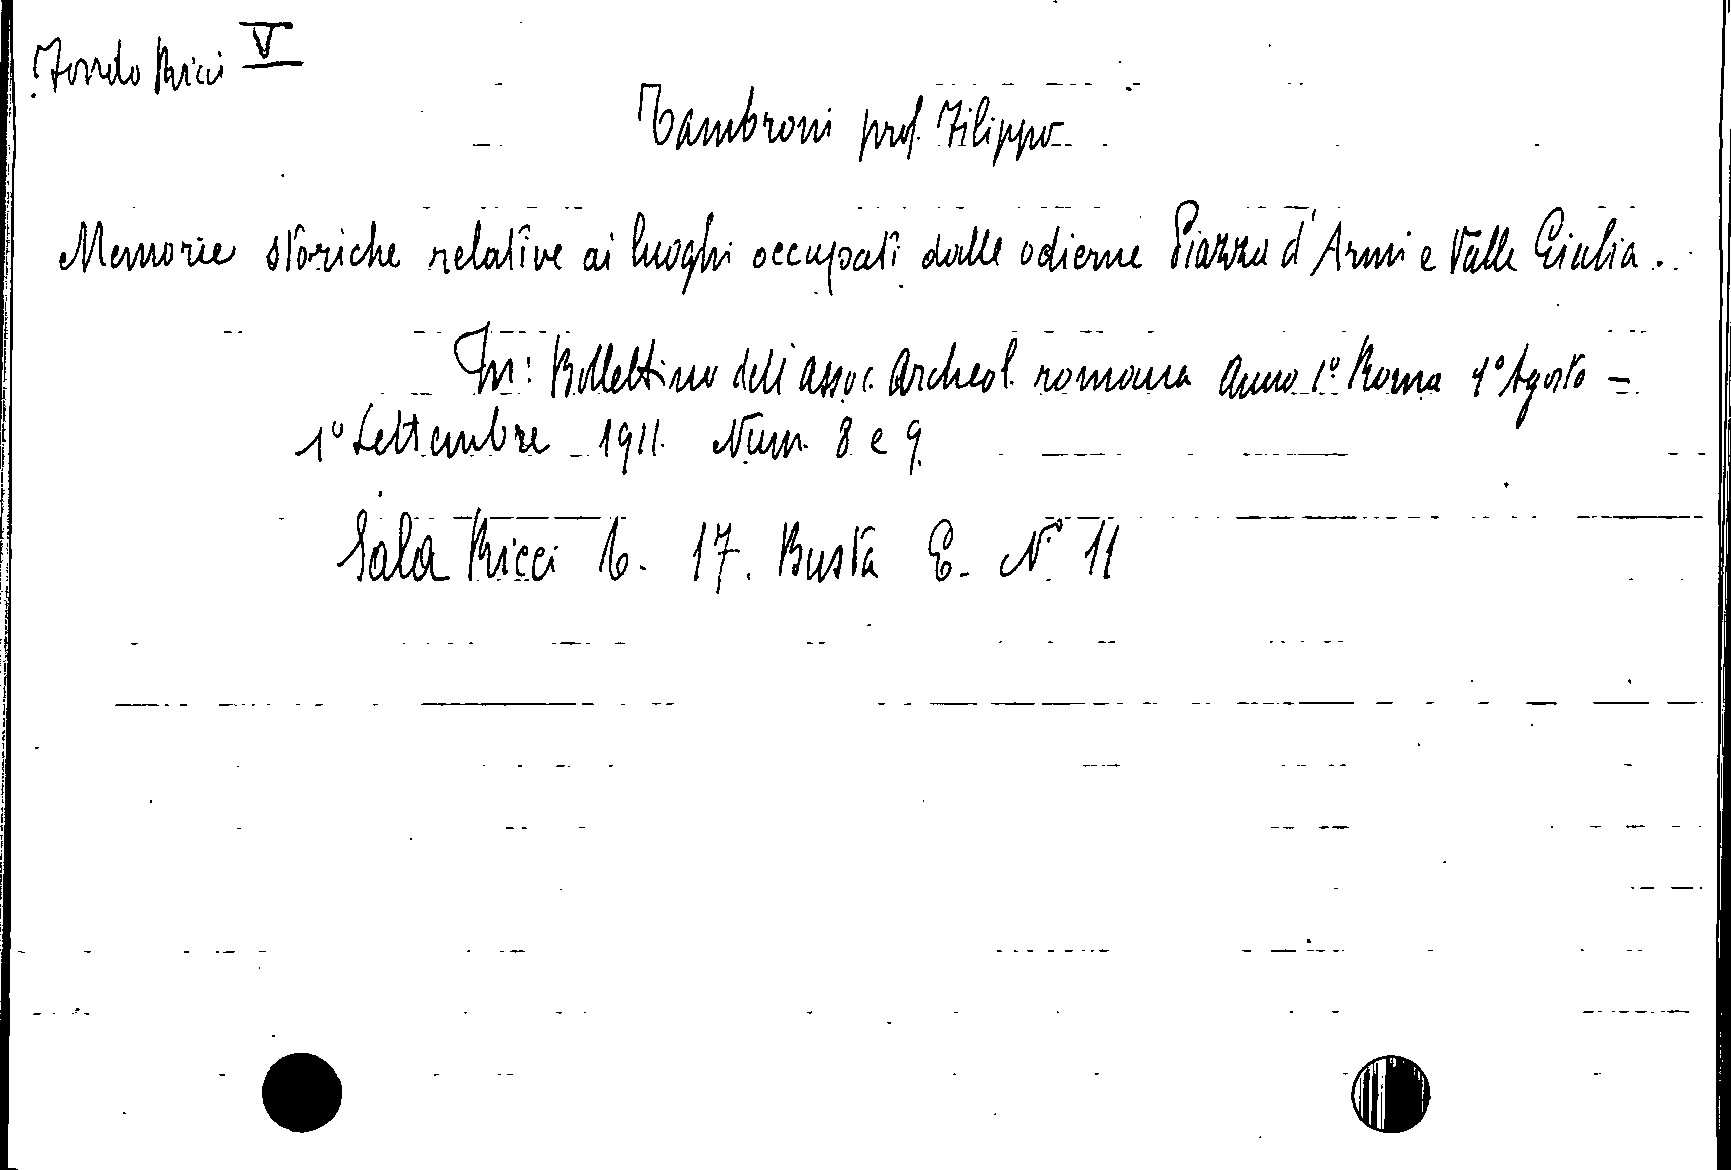 Fondo Ricci V
Tambroni prof. Filippo
Memorie storiche relative ai luoghi occupati dalle odierne Piazza d'Armi e Valle Giulia.
In: Bollettino dell'assoc. Archeol. romana Anno 1º. Roma 1º Agosto -
1º Settembre 1911. Num. 8 e 9.
Sala Ricci 6. 17. Busta E. Nº 11